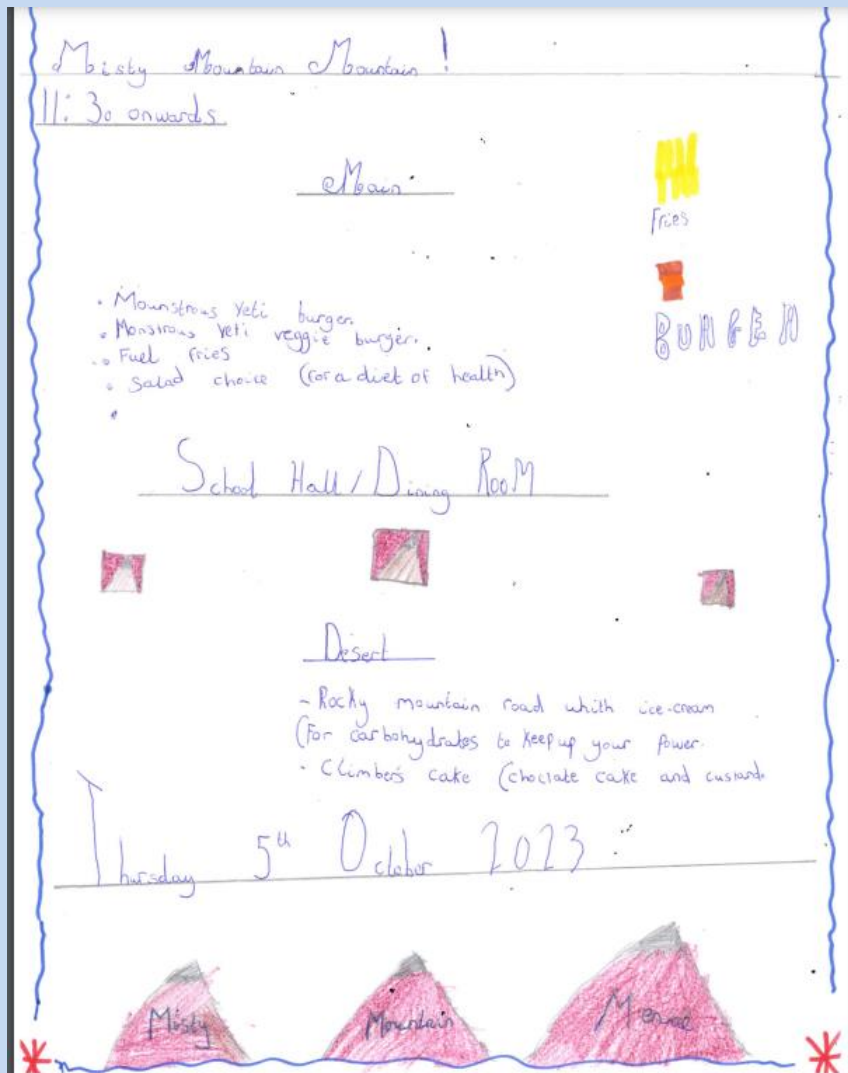 Misty Mountain Mountain!
11:30 onwards
Main
Fries
BURGER
• Mounstrous Yeti burger.
• Monstrous Yeti veggie burger.
• Fuel fries
• Salad choice (for a diet of health)
•
School Hall/Dining RooM
Desert
- Rocky mountain road whith ice-cream
(For carbohydrates to keep up your power.
• Climbers cake (choclate cake and custard.
Thursday 5th October 2023
Misty Mountain Menue